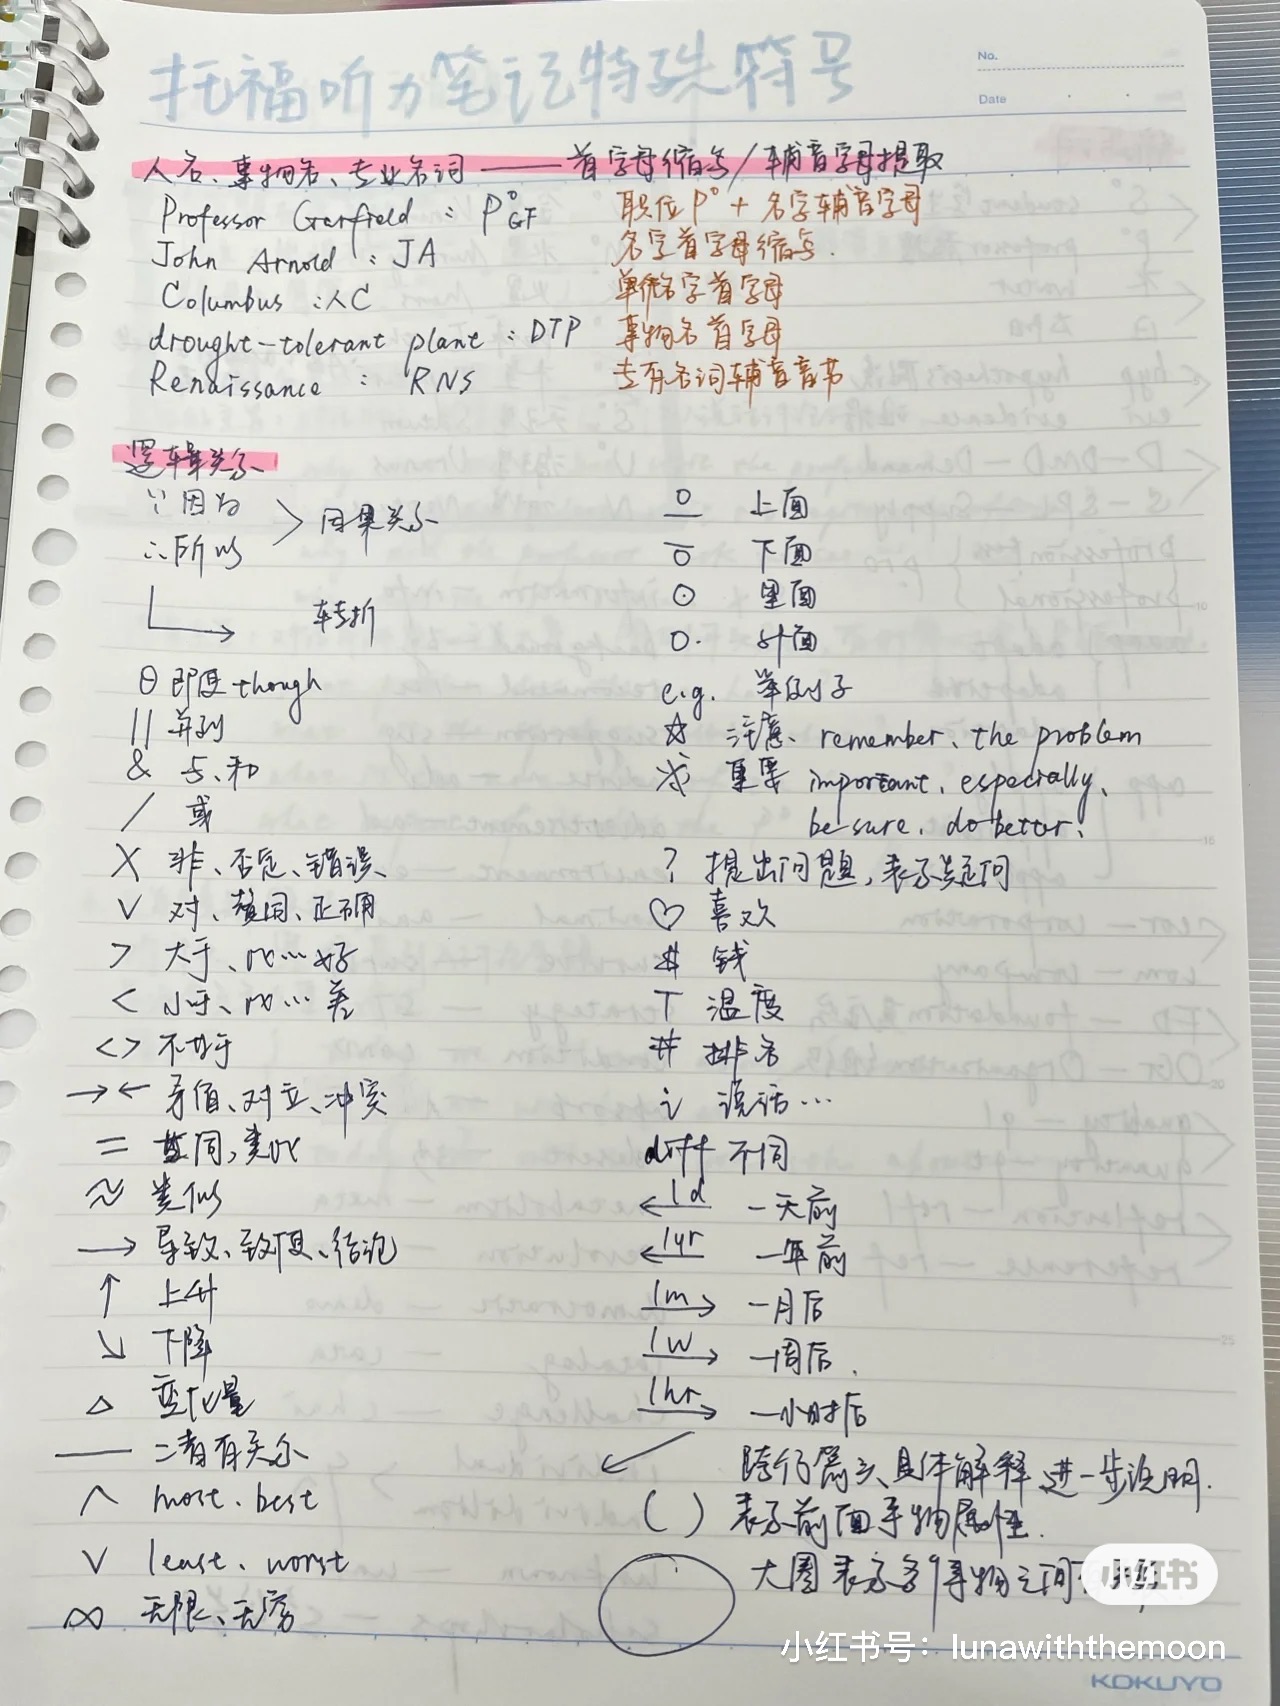 托福听力笔记特殊符号
No.
Date
人名、事物名、专业名词 —— 首字母缩写/辅音字母提取
Professor Garfield : P°GF 职位P° + 名字辅音字母
John Arnold : JA 名字首字母缩写.
Columbus : 人C 单个名字首字母
drought-tolerant plant : DTP 事物名首字母
Renaissance : RNS 专有名词辅音音节
逻辑关系
∵因为
∴所以
> 因果关系
转折
θ 即使 though
|| 并列
& 与、和
/ 或
X 非、否定、错误、
V 对、赞同、正确
> 大于、比…好
< 小于、比…差
<> 不等于
→← 矛盾、对立、冲突
= 等同,类比
≈ 类似
→ 导致、致使、结论
↑ 上升
↘ 下降
△ 变化量
— 二者有关系
∧ most. best
∨ least. worst
∞ 无限、无穷
上面
下面
⊙ 里面
O. 外面
e.g. 举例子
☆ 注意、remember、the problem
※ 重要 important、especially、
be sure、do better:
? 提出问题,表示疑问
♡ 喜欢
$ 钱
T 温度
# 排名
i 说话…
diff 不同
←1d 一天前
←1yr 一年前
1m→ 一月后
1w→ 一周后.
1hr→ 一小时后
↙ 跨行箭头具体解释 进一步说明.
( ) 表示前面事物属性.
大圈表示多个事物之间
小红书
小红书号：lunawiththemoon
KOKUYO